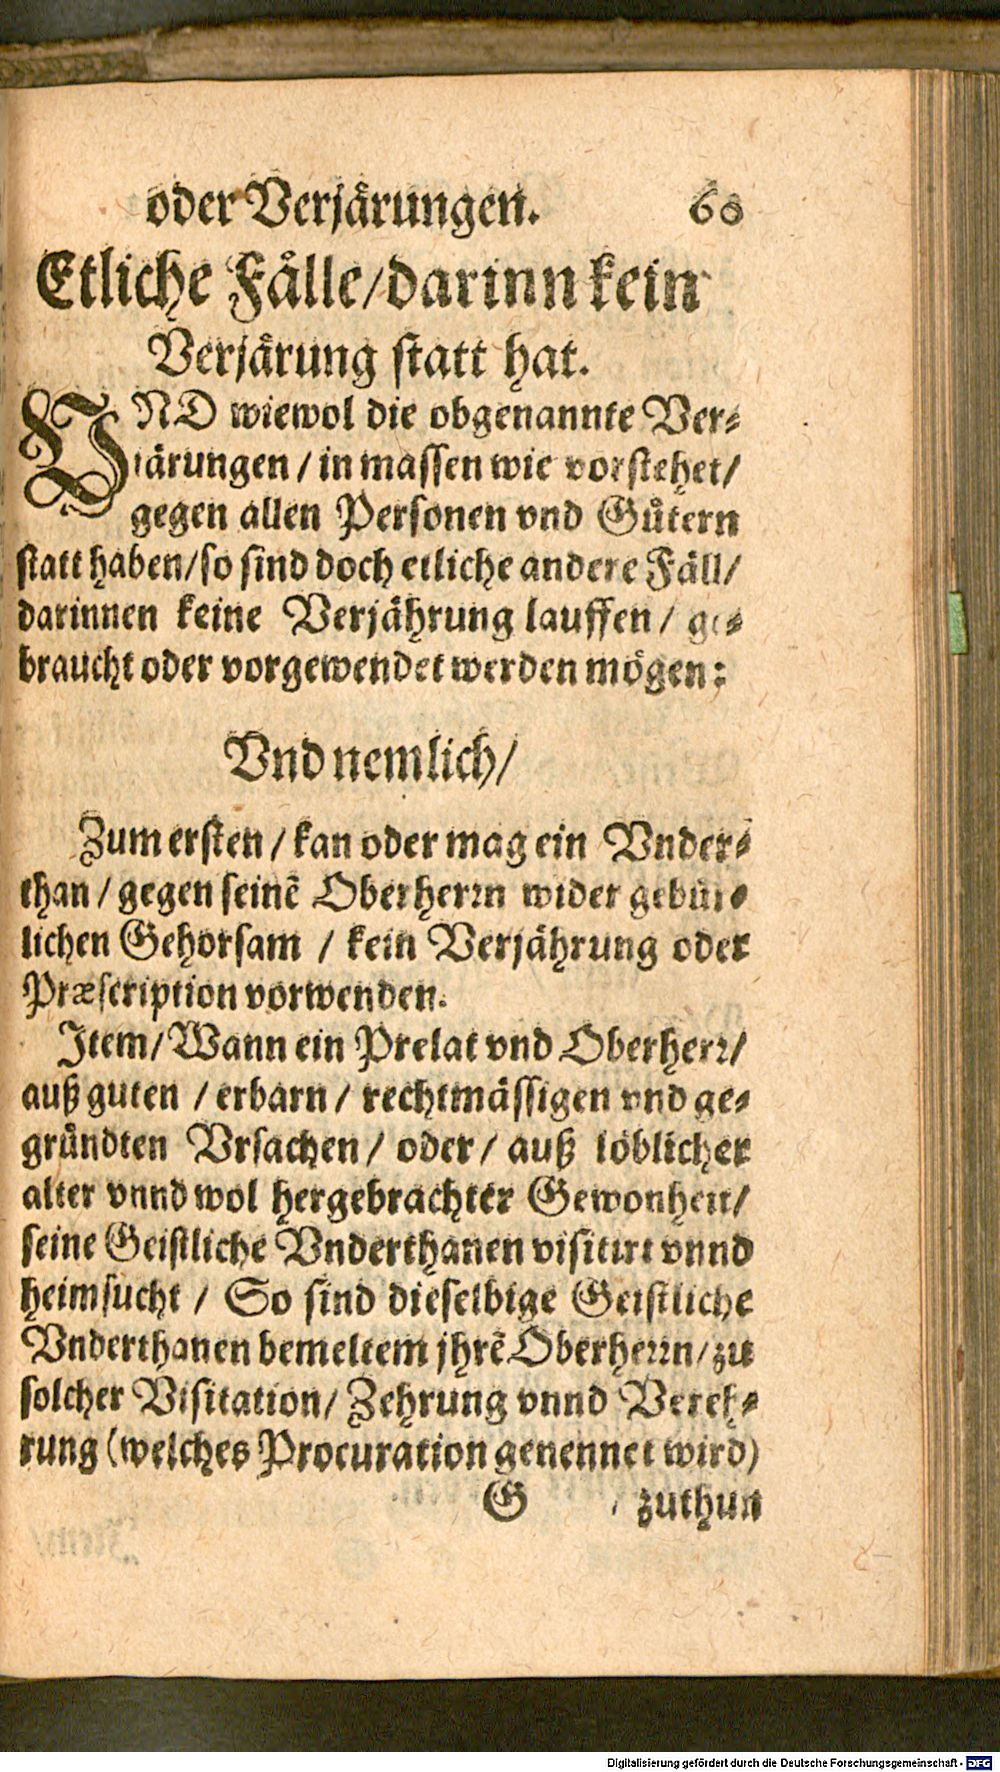 oder Verjärungen. 60
Etliche Fälle/darinn kein
Verjärung statt hat.
VND wiewol die obgenannte Ver-
järungen / in massen wie vorstehet/
gegen allen Personen vnd Gütern
statt haben/so sind doch etliche andere Fäll/
darinnen keine Verjährung lauffen / ge-
braucht oder vorgewendet werden mögen:
Vnd nemlich/
Zum ersten / kan oder mag ein Vnder-
than / gegen seinē Oberherrn wider gebür-
lichen Gehorsam / kein Verjährung oder
Præscription vorwenden.
Item/Wann ein Prelat vnd Oberherr/
auß guten / erbarn / rechtmässigen vnd ge-
gründten Vrsachen / oder / auß löblicher
alter vnnd wol hergebrachter Gewonheit/
seine Geistliche Vnderthanen visitirt vnnd
heimsucht / So sind dieselbige Geistliche
Vnderthanen bemeltem jhrē Oberherrn/zu
solcher Visitation/ Zehrung vnnd Vereh-
rung (welches Procuration genennet wird)
G zuthun
Digitalisierung gefördert durch die Deutsche Forschungsgemeinschaft - DFG